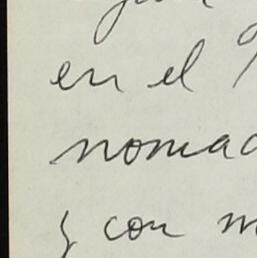 en el
nomad
y con m